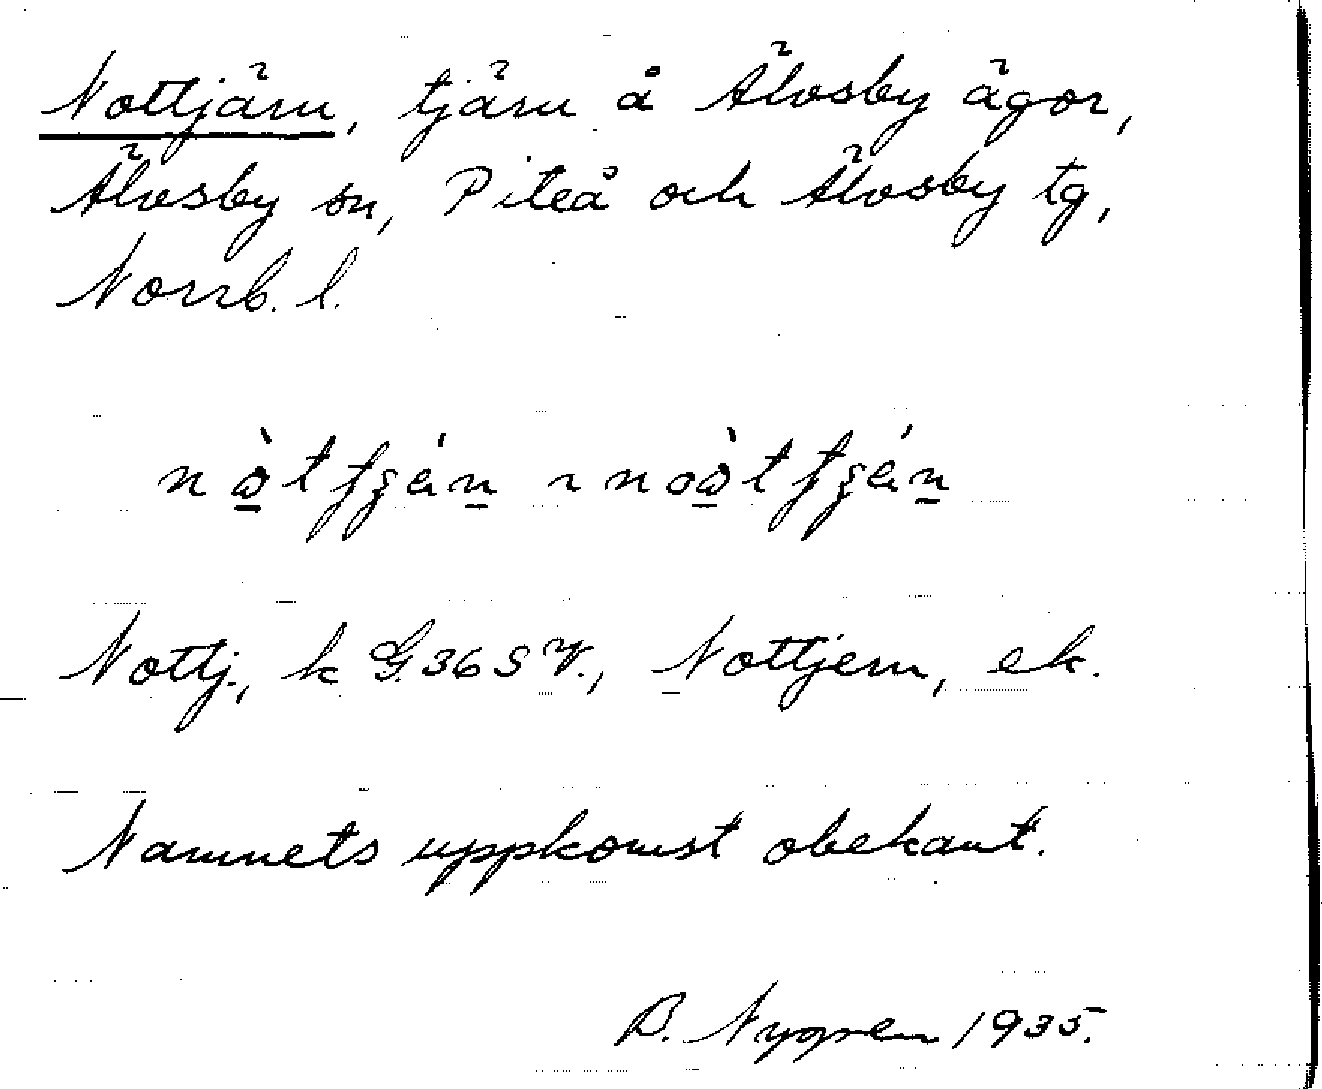 Nottjärn, tjärn å Älvsby ägor,
Älvsby sn, Piteå och Älvsby tg,
Norrb. l.
Nottj., k G. 36 S V., Nottjern, ek.
Namnets uppkomst obekant.
B. Nygren 1935.